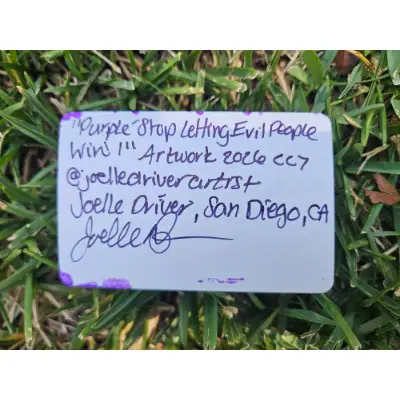 "Purple "Stop Letting Evil People
Win!!" Artwork 2026 CC7
@joelledriverartist
Joelle Driver, San Diego, CA
Joelle